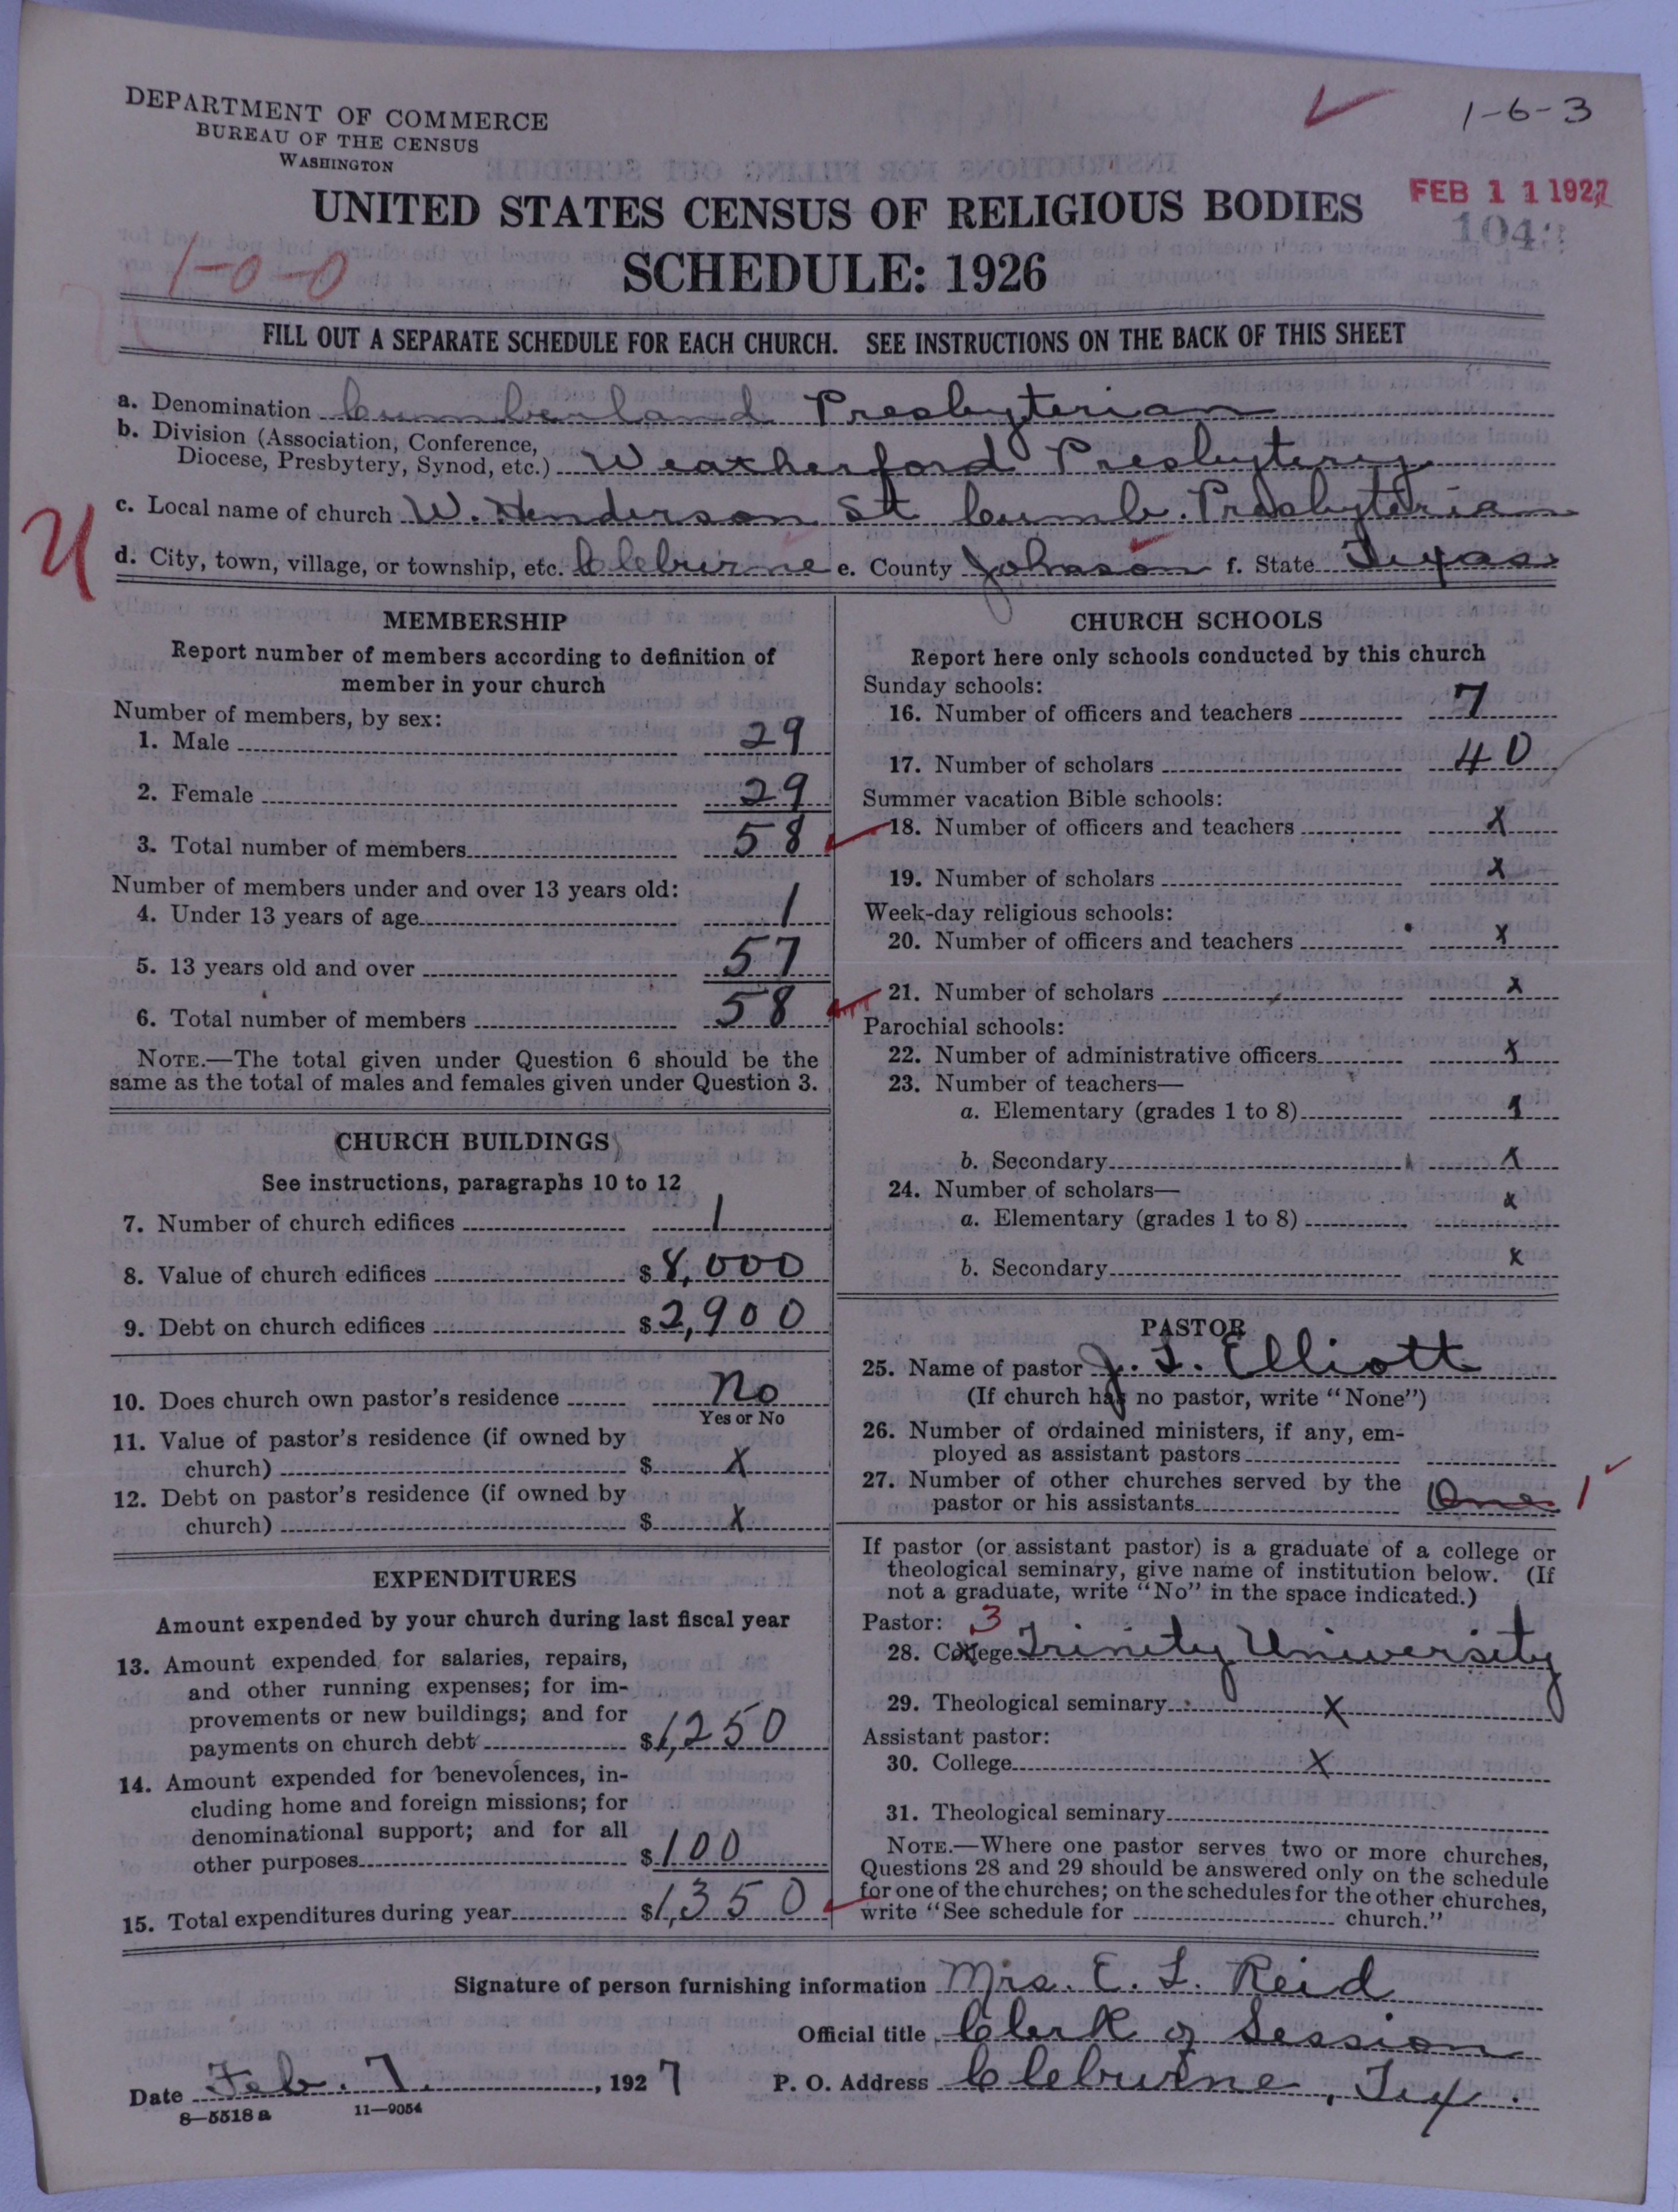 DEPARTMENT OF COMMERCE
BUREAU OF THE CENSUS
WASHINGTON
1-6-3
FEB 11 1927
104
UNITED STATES CENSUS OF RELIGIOUS BODIES
SCHEDULE: 1926
1-0-0
FILL OUT A SEPARATE SCHEDULE FOR EACH CHURCH. SEE INSTRUCTIONS ON THE BACK OF THIS SHEET
a. Denomination Cumberland Presbyterian
b. Division (Association, Conference,
Diocese, Presbytery, Synod, etc.) Weatherford Presbytery
c. Local name of church W. Henderson St Cumb. Presbyterian
d. City, town, village, or township, etc. Cleburne e. County Johnson f. State Texas
MEMBERSHIP
Report number of members according to definition of
member in your church
Number of members, by sex:
1. Male 29
2. Female 29
3. Total number of members 58
Number of members under and over 13 years old:
4. Under 13 years of age 1
5. 13 years old and over 57
6. Total number of members 58
NOTE.—The total given under Question 6 should be the
same as the total of males and females given under Question 3.
CHURCH BUILDINGS
See instructions, paragraphs 10 to 12
7. Number of church edifices 1
8. Value of church edifices $ 8,000
9. Debt on church edifices $ 2,900
10. Does church own pastor's residence No
Yes or No
11. Value of pastor's residence (if owned by
church) $ X
12. Debt on pastor's residence (if owned by
church) $ X
EXPENDITURES
Amount expended by your church during last fiscal year
13. Amount expended for salaries, repairs,
and other running expenses; for im-
provements or new buildings; and for
payments on church debt $ 1,250
14. Amount expended for benevolences, in-
cluding home and foreign missions; for
denominational support; and for all
other purposes $ 100
15. Total expenditures during year $ 1,350
CHURCH SCHOOLS
Report here only schools conducted by this church
Sunday schools:
16. Number of officers and teachers 7
17. Number of scholars 40
Summer vacation Bible schools:
18. Number of officers and teachers X
19. Number of scholars X
Week-day religious schools:
20. Number of officers and teachers X
21. Number of scholars X
Parochial schools:
22. Number of administrative officers X
23. Number of teachers—
a. Elementary (grades 1 to 8) X
b. Secondary X
24. Number of scholars—
a. Elementary (grades 1 to 8) X
b. Secondary X
PASTOR
25. Name of pastor J. L. Elliott
(If church has no pastor, write "None")
26. Number of ordained ministers, if any, em-
ployed as assistant pastors
27. Number of other churches served by the
pastor or his assistants One 1
If pastor (or assistant pastor) is a graduate of a college or
theological seminary, give name of institution below. (If
not a graduate, write "No" in the space indicated.)
Pastor: 3
28. College Trinity University
29. Theological seminary X
Assistant pastor:
30. College X
31. Theological seminary
NOTE.—Where one pastor serves two or more churches,
Questions 28 and 29 should be answered only on the schedule
for one of the churches; on the schedules for the other churches,
write "See schedule for church."
Signature of person furnishing information Mrs. E. L. Reid
Official title Clerk of Session
Date Feb. 7, 1927 P. O. Address Cleburne, Tex.
8—5518 a 11—9054